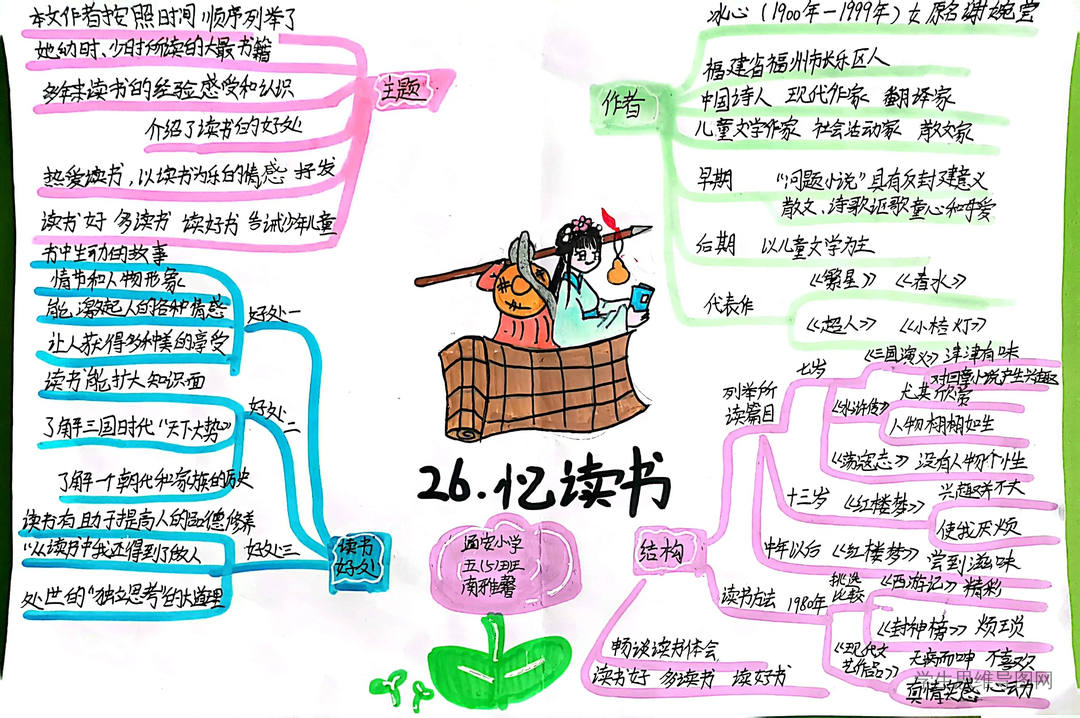 本文作者按照时间顺序列举了
她幼时、少时所读的大最书籍
多年来读书的经验感受和认识
介绍了读书的好处
热爱读书,以读书为乐的情感 抒发
读书好 多读书 读好书 告诫少年儿童
主题
书中生动的故事
情节和人物形象
能激起人的各种情感
让人获得多种美的享受
好处一
读书能扩大知识面
了解三国时代“天下大势”
了解一个朝代和家族的历史
好处二
读书有助于提高人的品德修养
“从读书中我还得到了做人
处世的“独立思考”的大道理
好处三
读书
好处
冰心(1900年-1999年)女 原名谢婉莹
福建省福州市长乐区人
中国诗人 现代作家 翻译家
儿童文学作家 社会活动家 散文家
作者
早期 “问题小说”具有反封建意义
散文、诗歌讴歌童心和母爱
后期 以儿童文学为主
代表作
《繁星》 《春水》
《超人》 《小桔灯》
26.忆读书
通安小学
五(5)班
南雅馨
结构
列举所
读篇目
七岁
《三国演义》津津有味
对回章小说产生兴趣
《水浒传》
尤其欣赏
人物栩栩如生
《荡寇志》没有人物个性
十三岁 《红楼梦》
兴趣并不大
使我厌烦
中年以后 《红楼梦》 尝到滋味
读书方法 1980年
挑选
比较
《西游记》精彩
《封神榜》烦琐
《现代文
艺作品》
无病而呻 不喜欢
真情实感 心动
畅谈读书体会
读书好 多读书 读好书
学生思维导图网